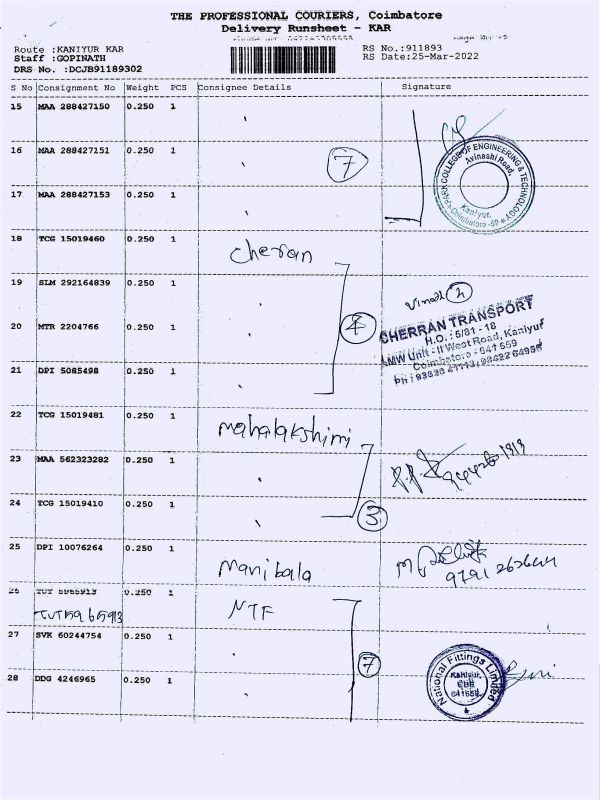 THE PROFESSIONAL COURIERS, Coimbatore
Delivery Runsheet - KAR
Route :KANIYUR KAR
Staff :GOPINATH
DRS No. :DCJB91189302
RS No.:911893
RS Date:25-Mar-2022
S No Consignment No Weight PCS Consignee Details Signature
15 MAA 288427150 0.250 1
16 MAA 288427151 0.250 1
7
17 MAA 288427153 0.250 1
PARK COLLEGE OF ENGINEERING & TECHNOLOGY
Avinashi Road,
Kaniyur,
Coimbatore -59
18 TCG 15019460 0.250 1 Cheran
19 SLM 292164839 0.250 1
Vinoth 4
20 MTR 2204766 0.250 1
4
CHERRAN TRANSPORT
H.O. : 5/81 - 18
LMW Unit - II West Road, Kaniyur
Coimbatore - 641 659
21 DPI 5085498 0.250 1
22 TCG 15019481 0.250 1 mahalakshimi
23 MAA 562323282 0.250 1
24 TCG 15019410 0.250 1
3
25 DPI 10076264 0.250 1 Manibala
26 TUT 5965913 0.250 1 NTF
TUT 5965913
27 SVK 60244754 0.250 1
7
28 DDG 4246965 0.250 1
National Fittings Limited
Kaniyur,
CBE
641659